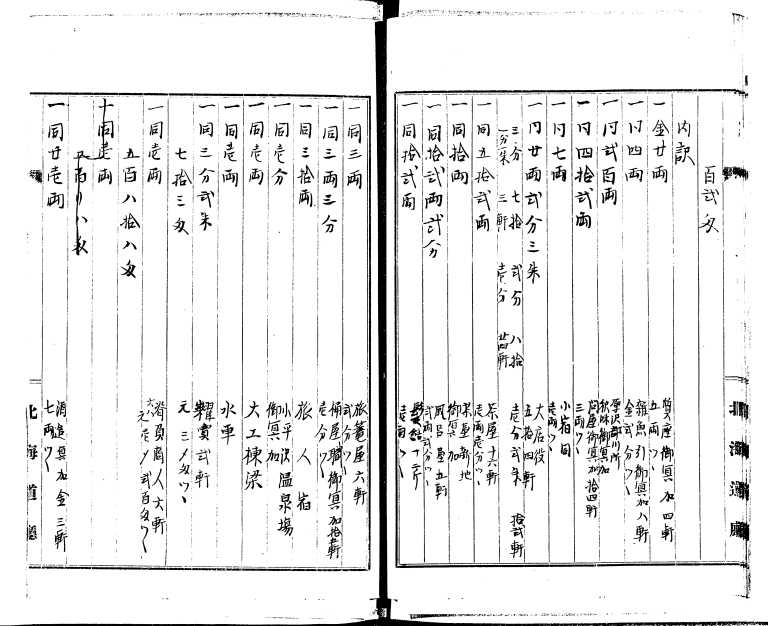 百弐匁
内訳
一 金廿両 質座御冥加四軒 五両ツヽ
一 同四両 雑魚引御冥加八軒 金弐分ツヽ
一 同弐百両
一 同四拾弐両 問屋御冥加拾四軒 三両ツヽ
一 同七両 小宿同 壱両ツヽ
一 同廿両弐分三朱 大店役 五拾四軒
三分 七拾 弐分 八拾 壱分弐朱 拾弐軒
一分朱 三軒 壱分 廿四軒
一 同五拾弐両 茶屋十六軒 壱両壱分ツヽ
一 同拾両 茶屋新地 御冥加
一 同拾弐両弐分 風呂屋五軒 弐両弐分ツヽ
一 同拾弐両 髪結十二軒 壱両ツヽ
北海道庁
一 同三両 旅籠屋六軒 弐分ツヽ
一 同三両三分 桶屋職御冥加拾五軒 壱分ツヽ
一 同三拾両 旅人宿
一 同壱分 小平沢温泉場 御冥加
一 同壱両 大工棟梁
一 同壱両 水車
一 同三分弐朱 糶売弐軒
七拾三匁 元三夕匁ツヽ
一 同壱両 背負商人六軒
五百八拾八匁
一 同壱両
五百八八匁
一 同廿壱両 酒造冥加金三軒 七両ツヽ
北海道庁